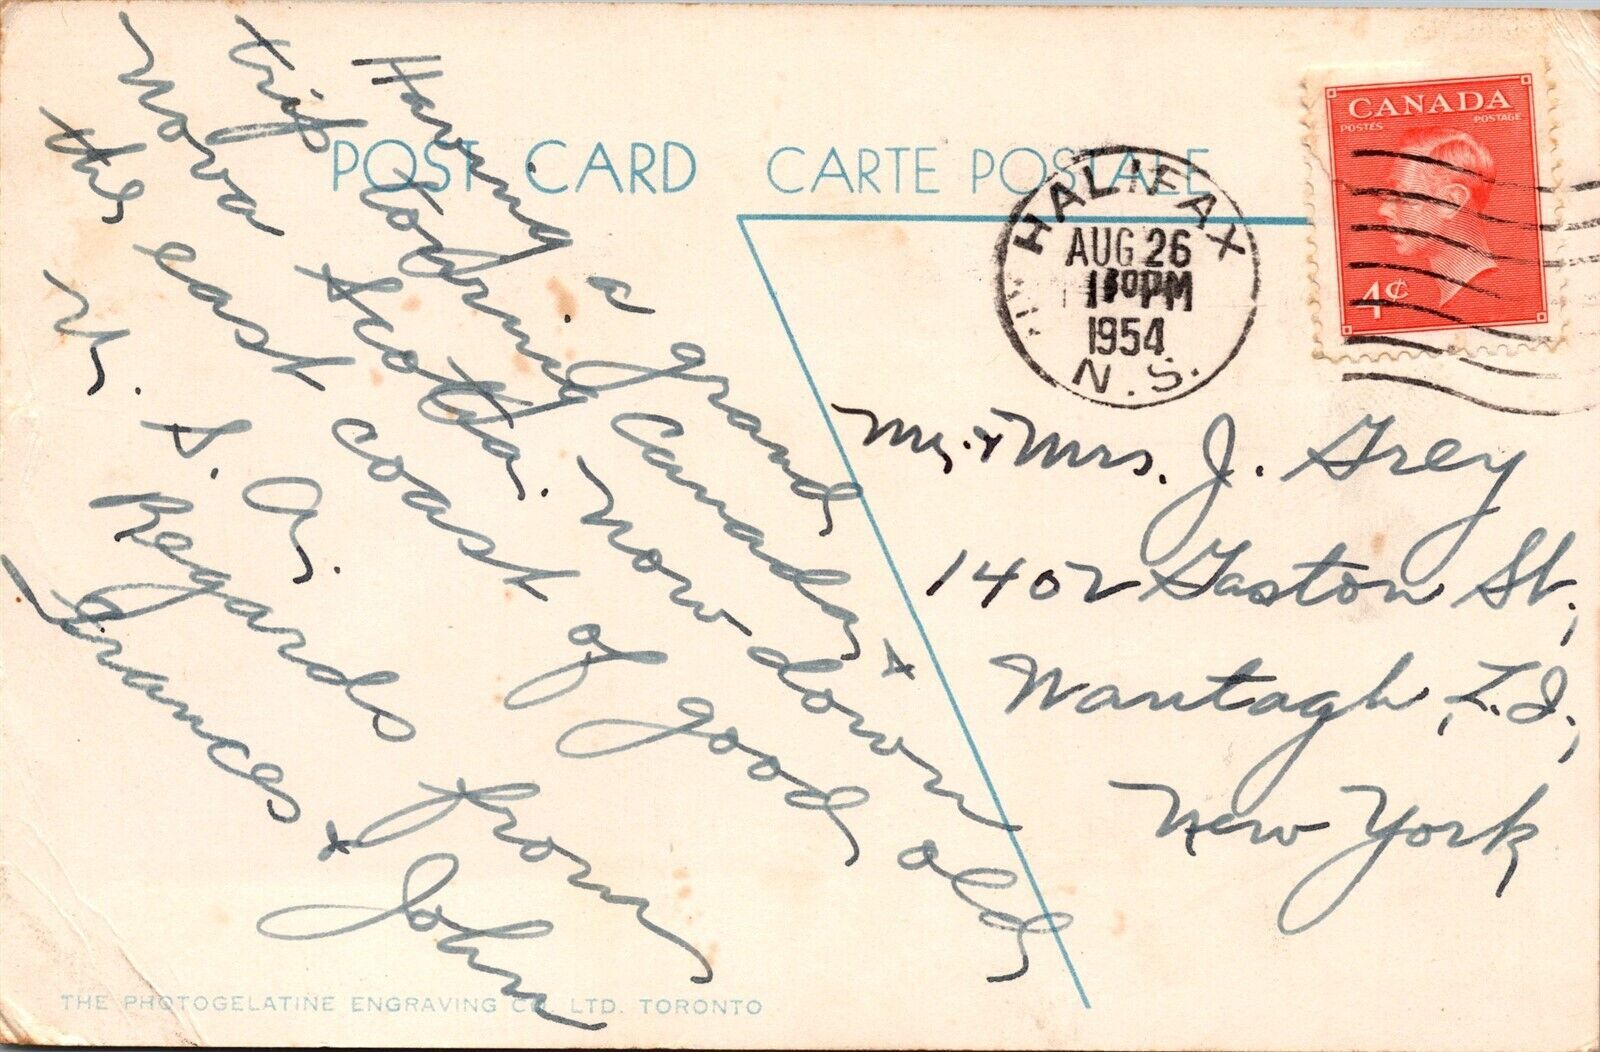 POST CARD CARTE POSTALE
Having a grand
trip touring Canada &
Nova Scotia. Now down
the east coast of good old
U. S. A.
Regards from
Frances & John
HALIFAX
AUG 26
PM
1954
N.S.
CANADA
POSTES POSTAGE
4¢
Mr. & Mrs. J. Grey
1402 Gaston St.,
Wantagh, L.I.,
New York
THE PHOTOGELATINE ENGRAVING CO. LTD. TORONTO